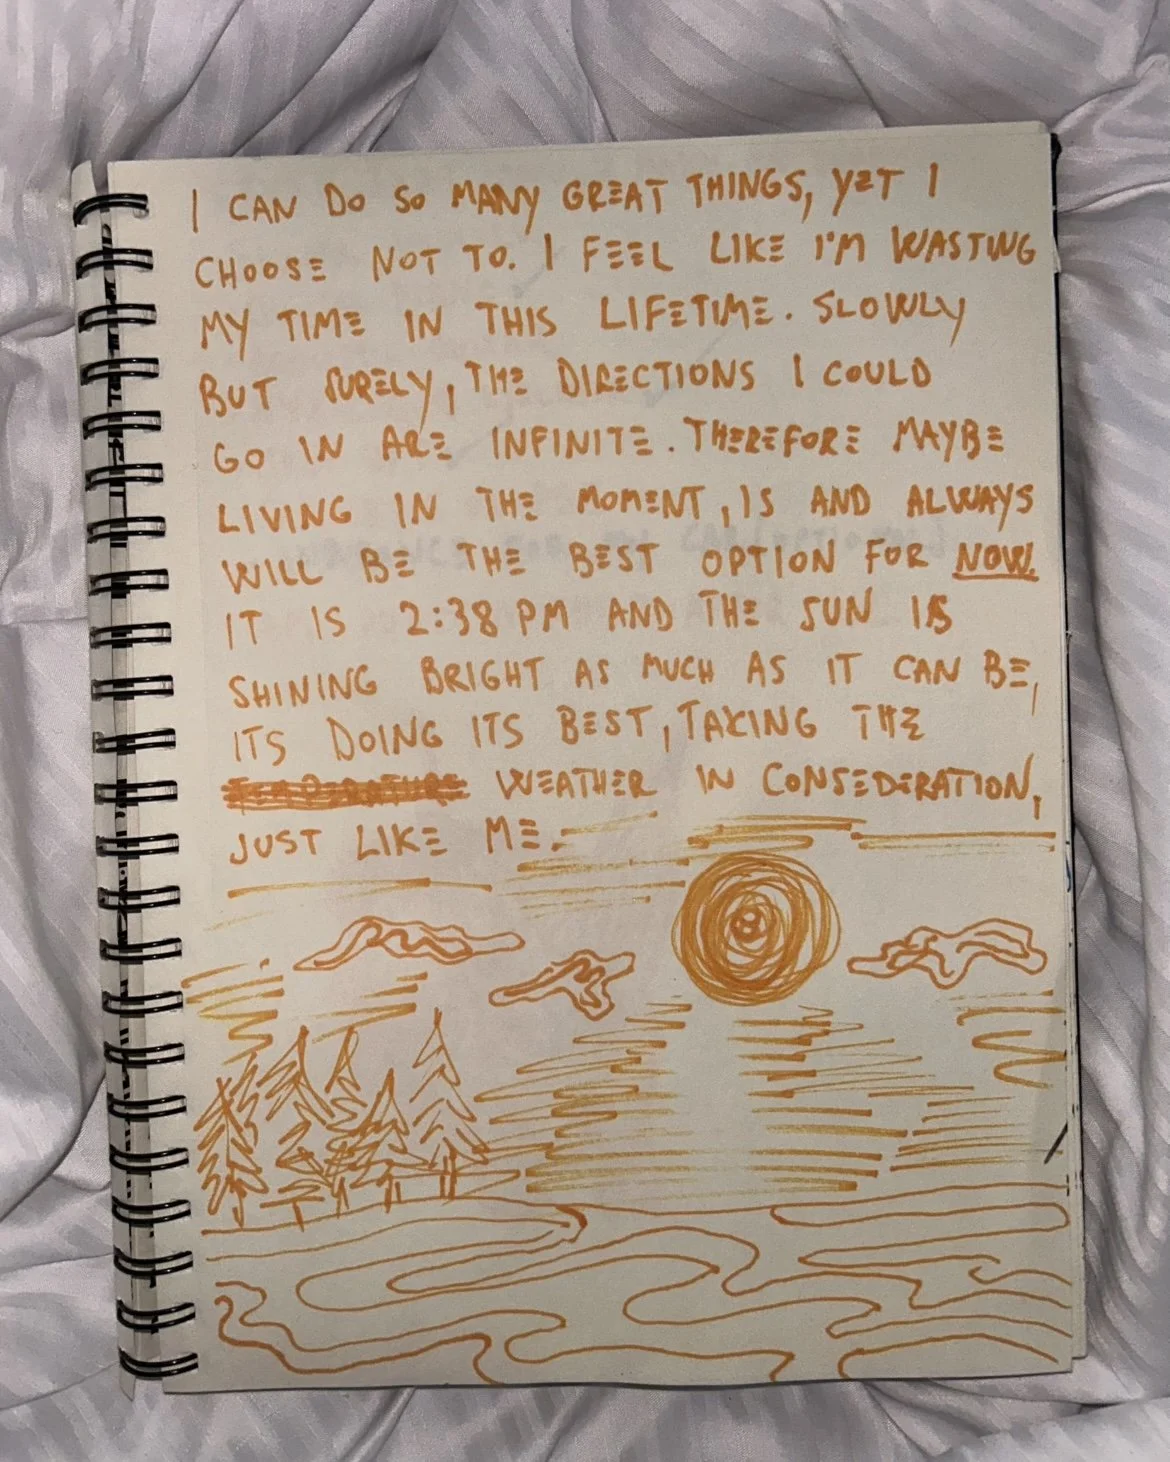 I CAN DO SO MANY GREAT THINGS, YET I
CHOOSE NOT TO. I FEEL LIKE I'M WASTING
MY TIME IN THIS LIFETIME. SLOWLY
BUT SURELY, THE DIRECTIONS I COULD
GO IN ARE INFINITE. THEREFORE MAYBE
LIVING IN THE MOMENT, IS AND ALWAYS
WILL BE THE BEST OPTION FOR NOW.
IT IS 2:38 PM AND THE SUN IS
SHINING BRIGHT AS MUCH AS IT CAN BE,
ITS DOING ITS BEST, TAKING THE
WEATHER IN CONSEDERATION,
JUST LIKE ME.